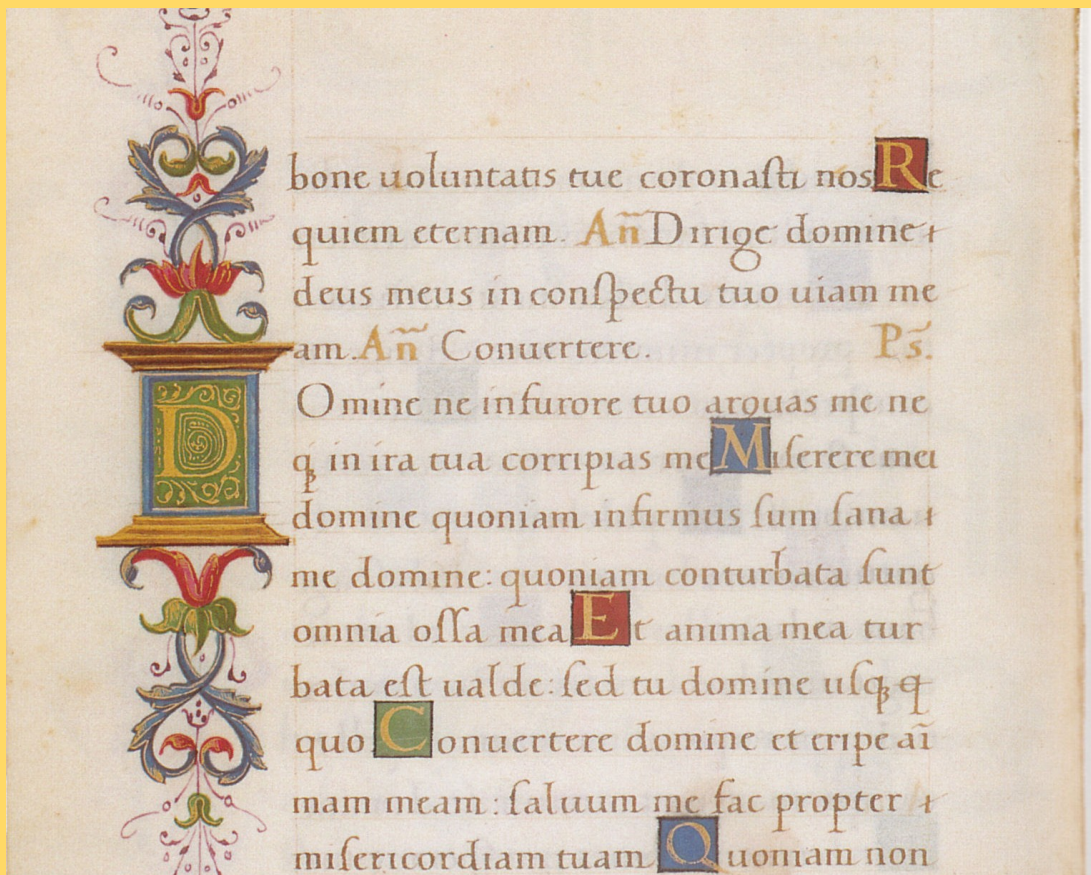 bone uoluntatis tue coronaſti nos Re
quiem eternam. Añ Dirige domine
deus meus in conſpectu tuo uiam me
am. Añ Conuertere. Ps̄.
D Omine ne in furore tuo arguas me ne
qꝫ in ira tua corripias me Miſerere mei
domine quoniam infirmus ſum ſana
me domine: quoniam conturbata ſunt
omnia oſſa mea Et anima mea tur
bata eſt ualde: ſed tu domine uſqꝫ q
quo Conuertere domine et eripe aı̄
mam meam: ſaluum me fac propter
miſericordiam tuam Quoniam non